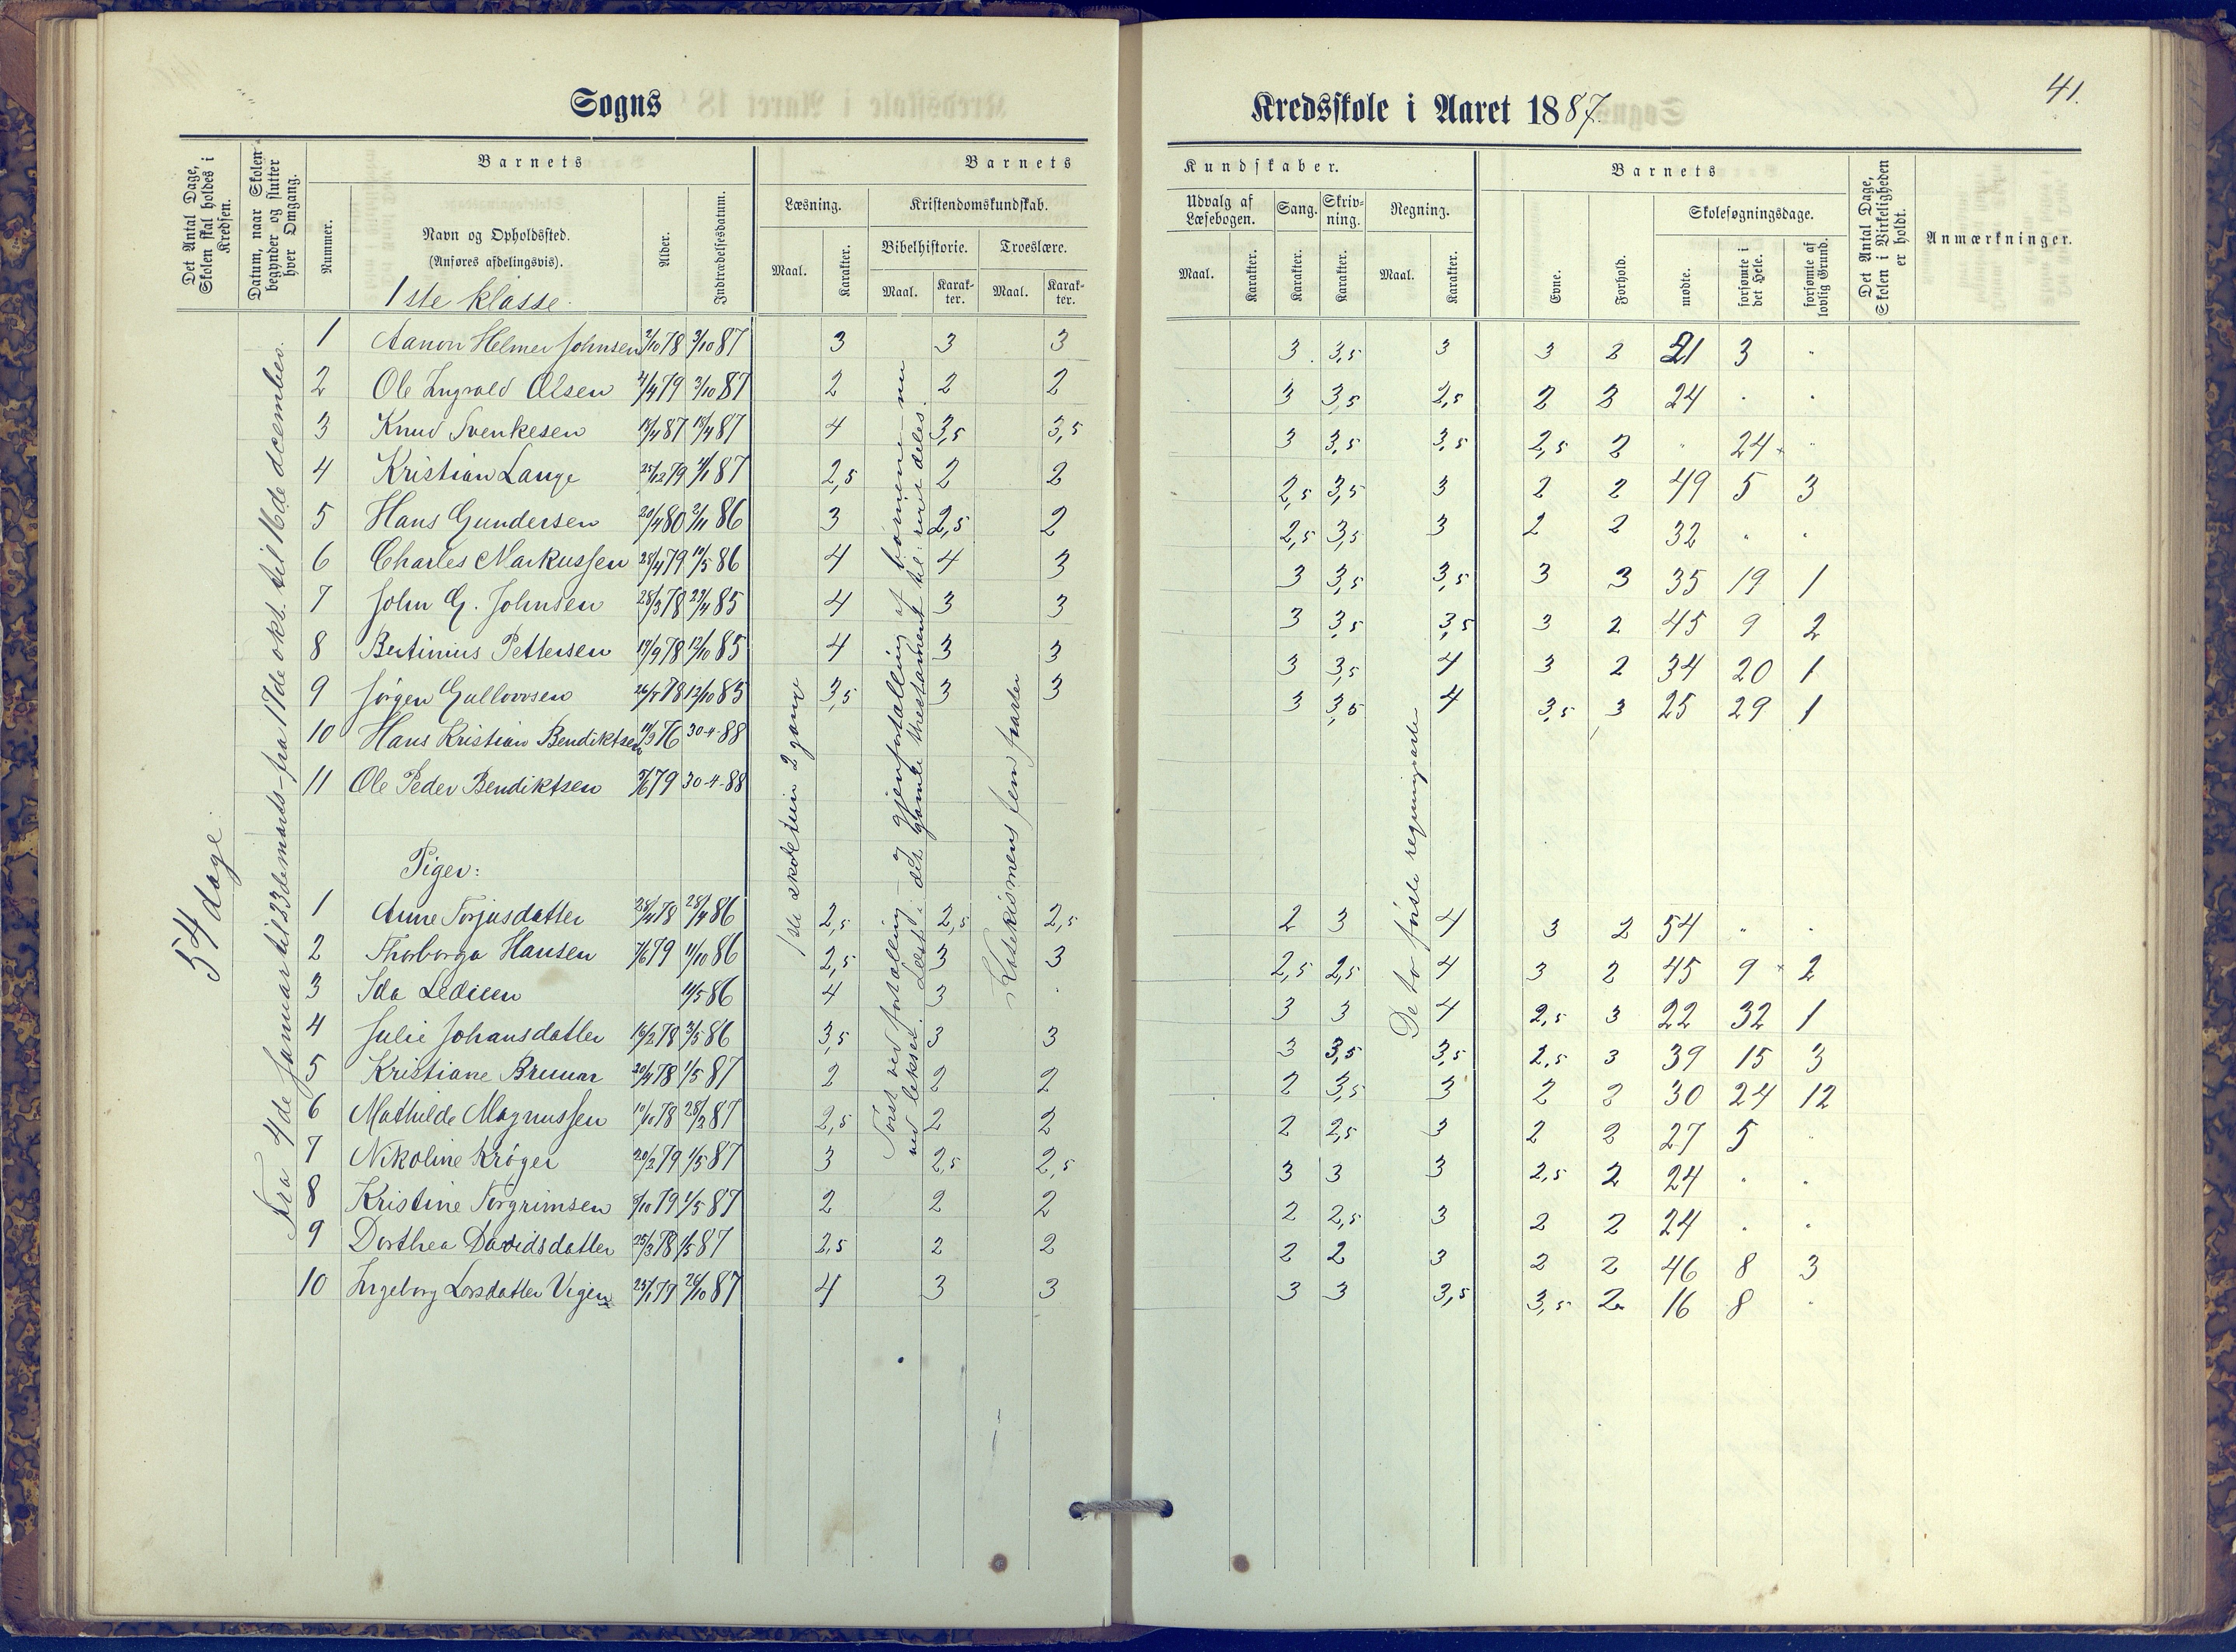 41.
Sogns Kredsskole i Aaret 1887.
Det Antal Dage, Skolen skal holdes i Kredsen.
Datum, naar Skolen begynder og slutter hver Omgang.
Barnets
Nummer.
Navn og Opholdssted.
(Anføres afdelingsvis).
1ste klasse.
Alder.
Indtrædelsesdatum.
Barnets Kundskaber.
Læsning.
Maal.
Karakter.
Kristendomskundskab.
Bibelhistorie.
Maal.
Karakter.
Troeslære.
Maal.
Karakter.
Udvalg af Læsebogen.
Maal.
Karakter.
Sang.
Karakter.
Skrivning.
Karakter.
Regning.
Maal.
Karakter.
Barnets
Evne.
Forhold.
Skolesøgningsdage.
mødte.
forsømte i det Hele.
forsømte af lovlig Grund.
Det Antal Dage, Skolen i Virkeligheden er holdt.
Anmærkninger.
54 dage.
Fra 4de januar til 23de marts – fra 17de okt. til 16de december.
1ste skoletrin 2 gang
Katekismens fem parter
De to første regningsarter
1 Aanon Helmer Johnsen 2/10 78 3/10 87 3 3 3 3 3,5 3 3 2 21 3 "
2 Ole Ingvald Olsen 2/4 79 3/10 87 2 2 2 3 3,5 2,5 2 2 24 " "
3 Knud Svenkesen 18/4 87 4 3,5 3,5 3 3,5 3,5 2,5 2 " 24 "
4 Kristian Lange 25/12 79 87 2,5 2 2 2,5 3,5 3 2 2 49 5 3
5 Hans Gundersen 20/4 80 2/11 86 3 2,5 2 2,5 3,5 3 2 2 32 " "
6 Charles Markussen 28/4 79 86 4 4 3 3 3,5 3,5 3 3 35 19 1
7 John G. Johnsen 28/3 78 85 4 3 3 3 3,5 3,5 3 2 45 9 2
8 Bertinius Pettersen 78 12/10 85 4 3 3 3 3,5 4 3 2 34 20 1
9 Jørgen 78 12/10 85 3,5 3 3 3 3,5 4 3,5 3 25 29 1
10 Hans Kristian Bendiktsen 76 30-4-88
11 Ole Peder Bendiktsen 79 30-4-88
Piger:
1 Anne Torjusdatter 78 86 2,5 2,5 2,5 2 3 4 3 2 54 " "
2 Thorborga Hansen 79 11/10 86 2,5 3 3 2,5 2,5 4 3 2 45 9 2
3 Ida 86 4 3 " 3 3 4 2,5 3 22 32 1
4 Julie Johansdatter 16/2 78 3/5 86 3,5 3 3 3 3,5 3,5 2,5 3 39 15 3
5 Kristiane 20/4 78 1/5 87 2 2 2 2 3,5 3 2 2 30 24 12
6 Mathilde Magnussen 10/10 78 87 2,5 2 2 2 2,5 3 2 2 27 5 "
7 Nikoline Krøger 20/2 79 1/5 87 3 2,5 2,5 3 3 3 2,5 2 24 " "
8 Kristine Torgrimsen 79 1/5 87 2 2 2 2 2,5 3 2 2 24 " "
9 Dorthea Davidsdatter 25/3 78 1/5 87 2,5 2 2 2 2 3 2 2 46 8 3
10 Ingeborg Larsdatter Vigen 79 26/10 87 4 3 3 3 3 3,5 3,5 2 16 8 "